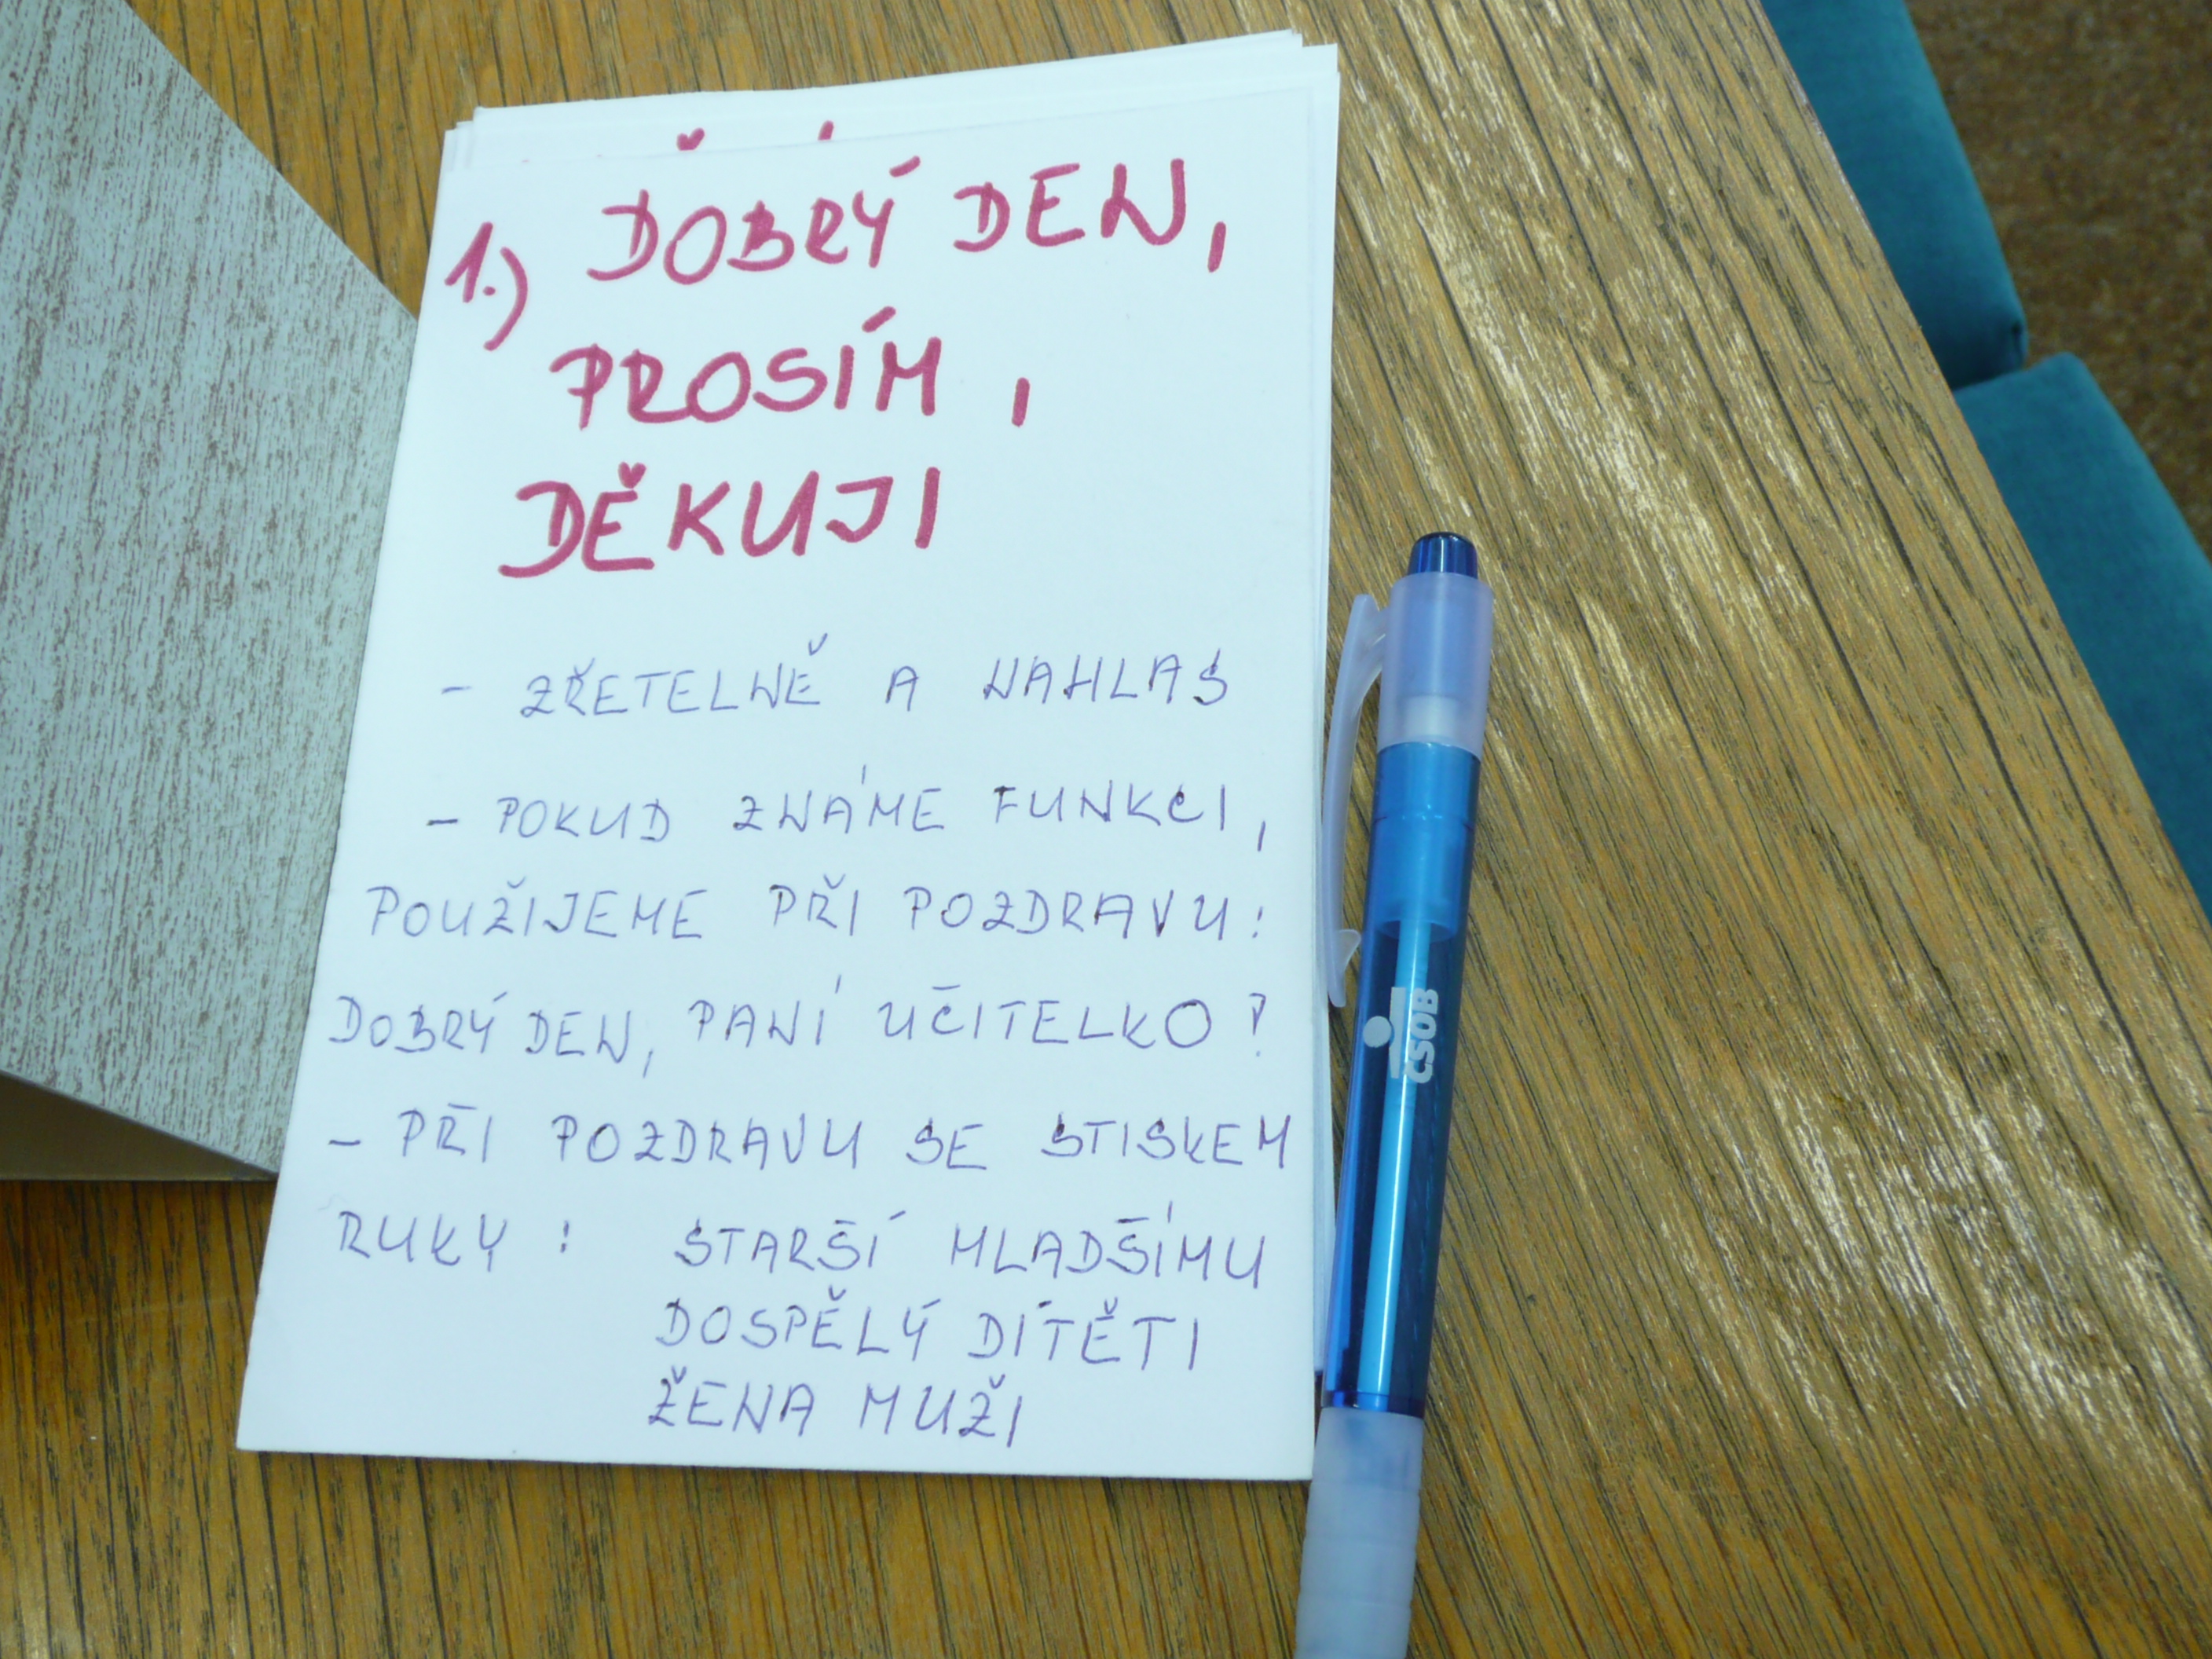 1.) DOBRÝ DEN,
PROSÍM,
DĚKUJI
- ZŘETELNĚ A NAHLAS
- POKUD ZNÁME FUNKCI,
POUŽIJEME PŘI POZDRAVU:
DOBRÝ DEN, PANÍ UČITELKO!
- PŘI POZDRAVU SE STISKEM
RUKY: STARŠÍ MLADŠÍMU
DOSPĚLÝ DÍTĚTI
ŽENA MUŽI
ČSOB